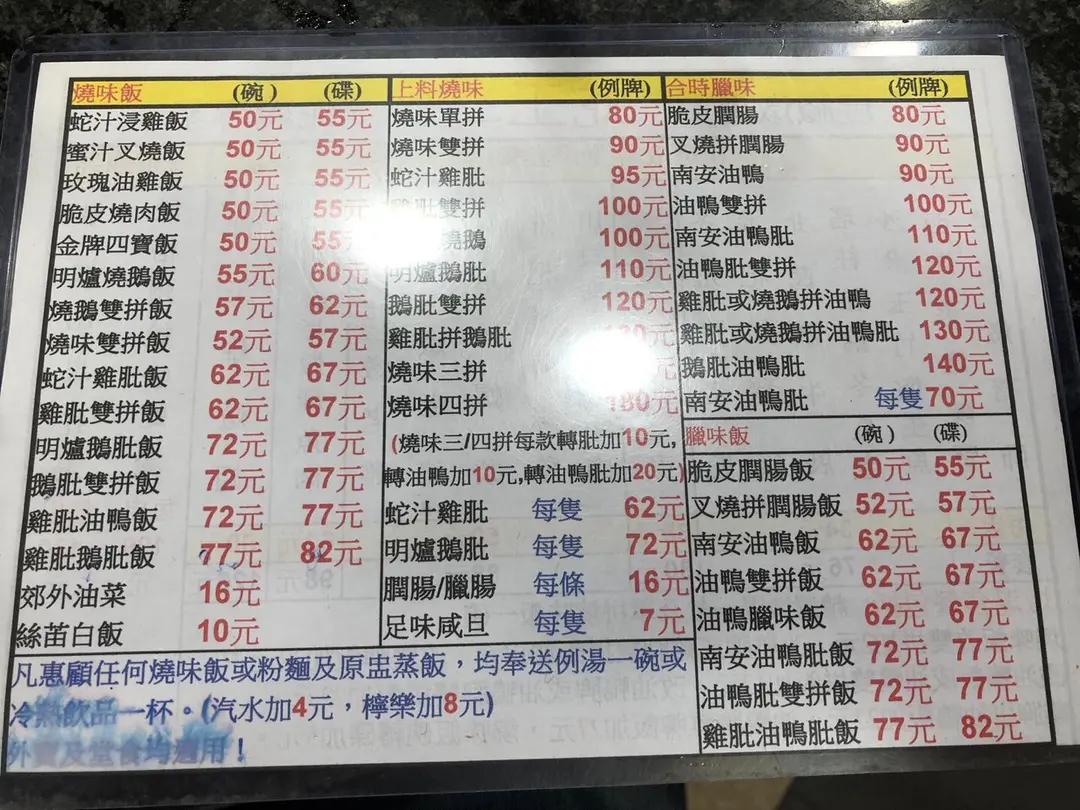 燒味飯 (碗) (碟)
蛇汁浸雞飯 50元 55元
蜜汁叉燒飯 50元 55元
玫瑰油雞飯 50元 55元
脆皮燒肉飯 50元 55元
金牌四寶飯 50元 55
明爐燒鵝飯 55元 60元
燒鵝雙拼飯 57元 62元
燒味雙拼飯 52元 57元
蛇汁雞髀飯 62元 67元
雞髀雙拼飯 62元 67元
明爐鵝髀飯 72元 77元
鵝髀雙拼飯 72元 77元
雞髀油鴨飯 72元 77元
雞髀鵝髀飯 77元 82元
郊外油菜 16元
絲苗白飯 10元
上料燒味 (例牌)
燒味單拼 80元
燒味雙拼 90元
蛇汁雞髀 95元
髀雙拼 100元
燒鵝 100元
明爐鵝髀 110元
鵝髀雙拼 120元
雞髀拼鵝髀 元
燒味三拼 元
燒味四拼 180元
(燒味三/四拼每款轉髀加10元,
轉油鴨加10元,轉油鴨髀加20元)
蛇汁雞髀 每隻 62元
明爐鵝髀 每隻 72元
膶腸/臘腸 每條 16元
足味咸旦 每隻 7元
合時臘味 (例牌)
脆皮膶腸 80元
叉燒拼膶腸 90元
南安油鴨 90元
油鴨雙拼 100元
南安油鴨髀 110元
油鴨髀雙拼 120元
雞髀或燒鵝拼油鴨 120元
雞髀或燒鵝拼油鴨髀 130元
鵝髀油鴨髀 140元
南安油鴨髀 每隻70元
臘味飯 (碗) (碟)
脆皮膶腸飯 50元 55元
叉燒拼膶腸飯 52元 57元
南安油鴨飯 62元 67元
油鴨雙拼飯 62元 67元
油鴨臘味飯 62元 67元
南安油鴨髀飯 72元 77元
油鴨髀雙拼飯 72元 77元
雞髀油鴨髀飯 77元 82元
凡惠顧任何燒味飯或粉麵及原盅蒸飯，均奉送例湯一碗或
冷熱飲品一杯。(汽水加4元，檸樂加8元)
外賣及堂食均適用！